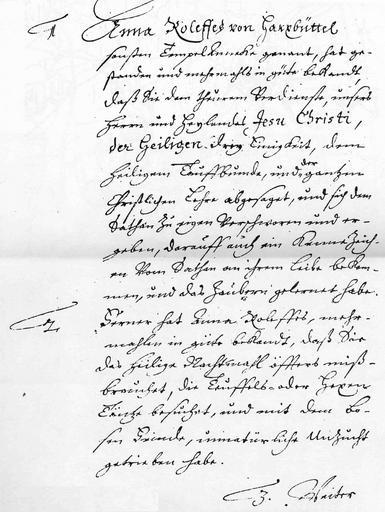 1 Anna Roleffes von Harxbüttel
sonsten Tempel Anneke genant, hat ge-
standen und mehrmahls in güte bekandt
daß Sie dem theuren Verdienste, unsers
Herrn und Heylandes Jesu Christi,
der Heiligen drey Einigkeit, dem
heiligen Tauffbunde, und der gantzen
Christlichen Lehre abgesaget, und sich dem
Sathan zu eigen verschworen und er-
geben, darauff auch ein Kennezeich-
en vom Sathan an ihrem Leibe bekom-
men, und das Zaubern gelernet habe.
2 Ferner hat Anna Roleffes, mehr-
mahln in güte bekandt, daß Sie
das heilige Nachtmahl öffters miß-
brauchet, die Teuffels- oder Hexen
Täntze besuchet, und mit dem bö-
sen Feinde, unnatürliche Unzucht
getrieben habe.
3. Weiter